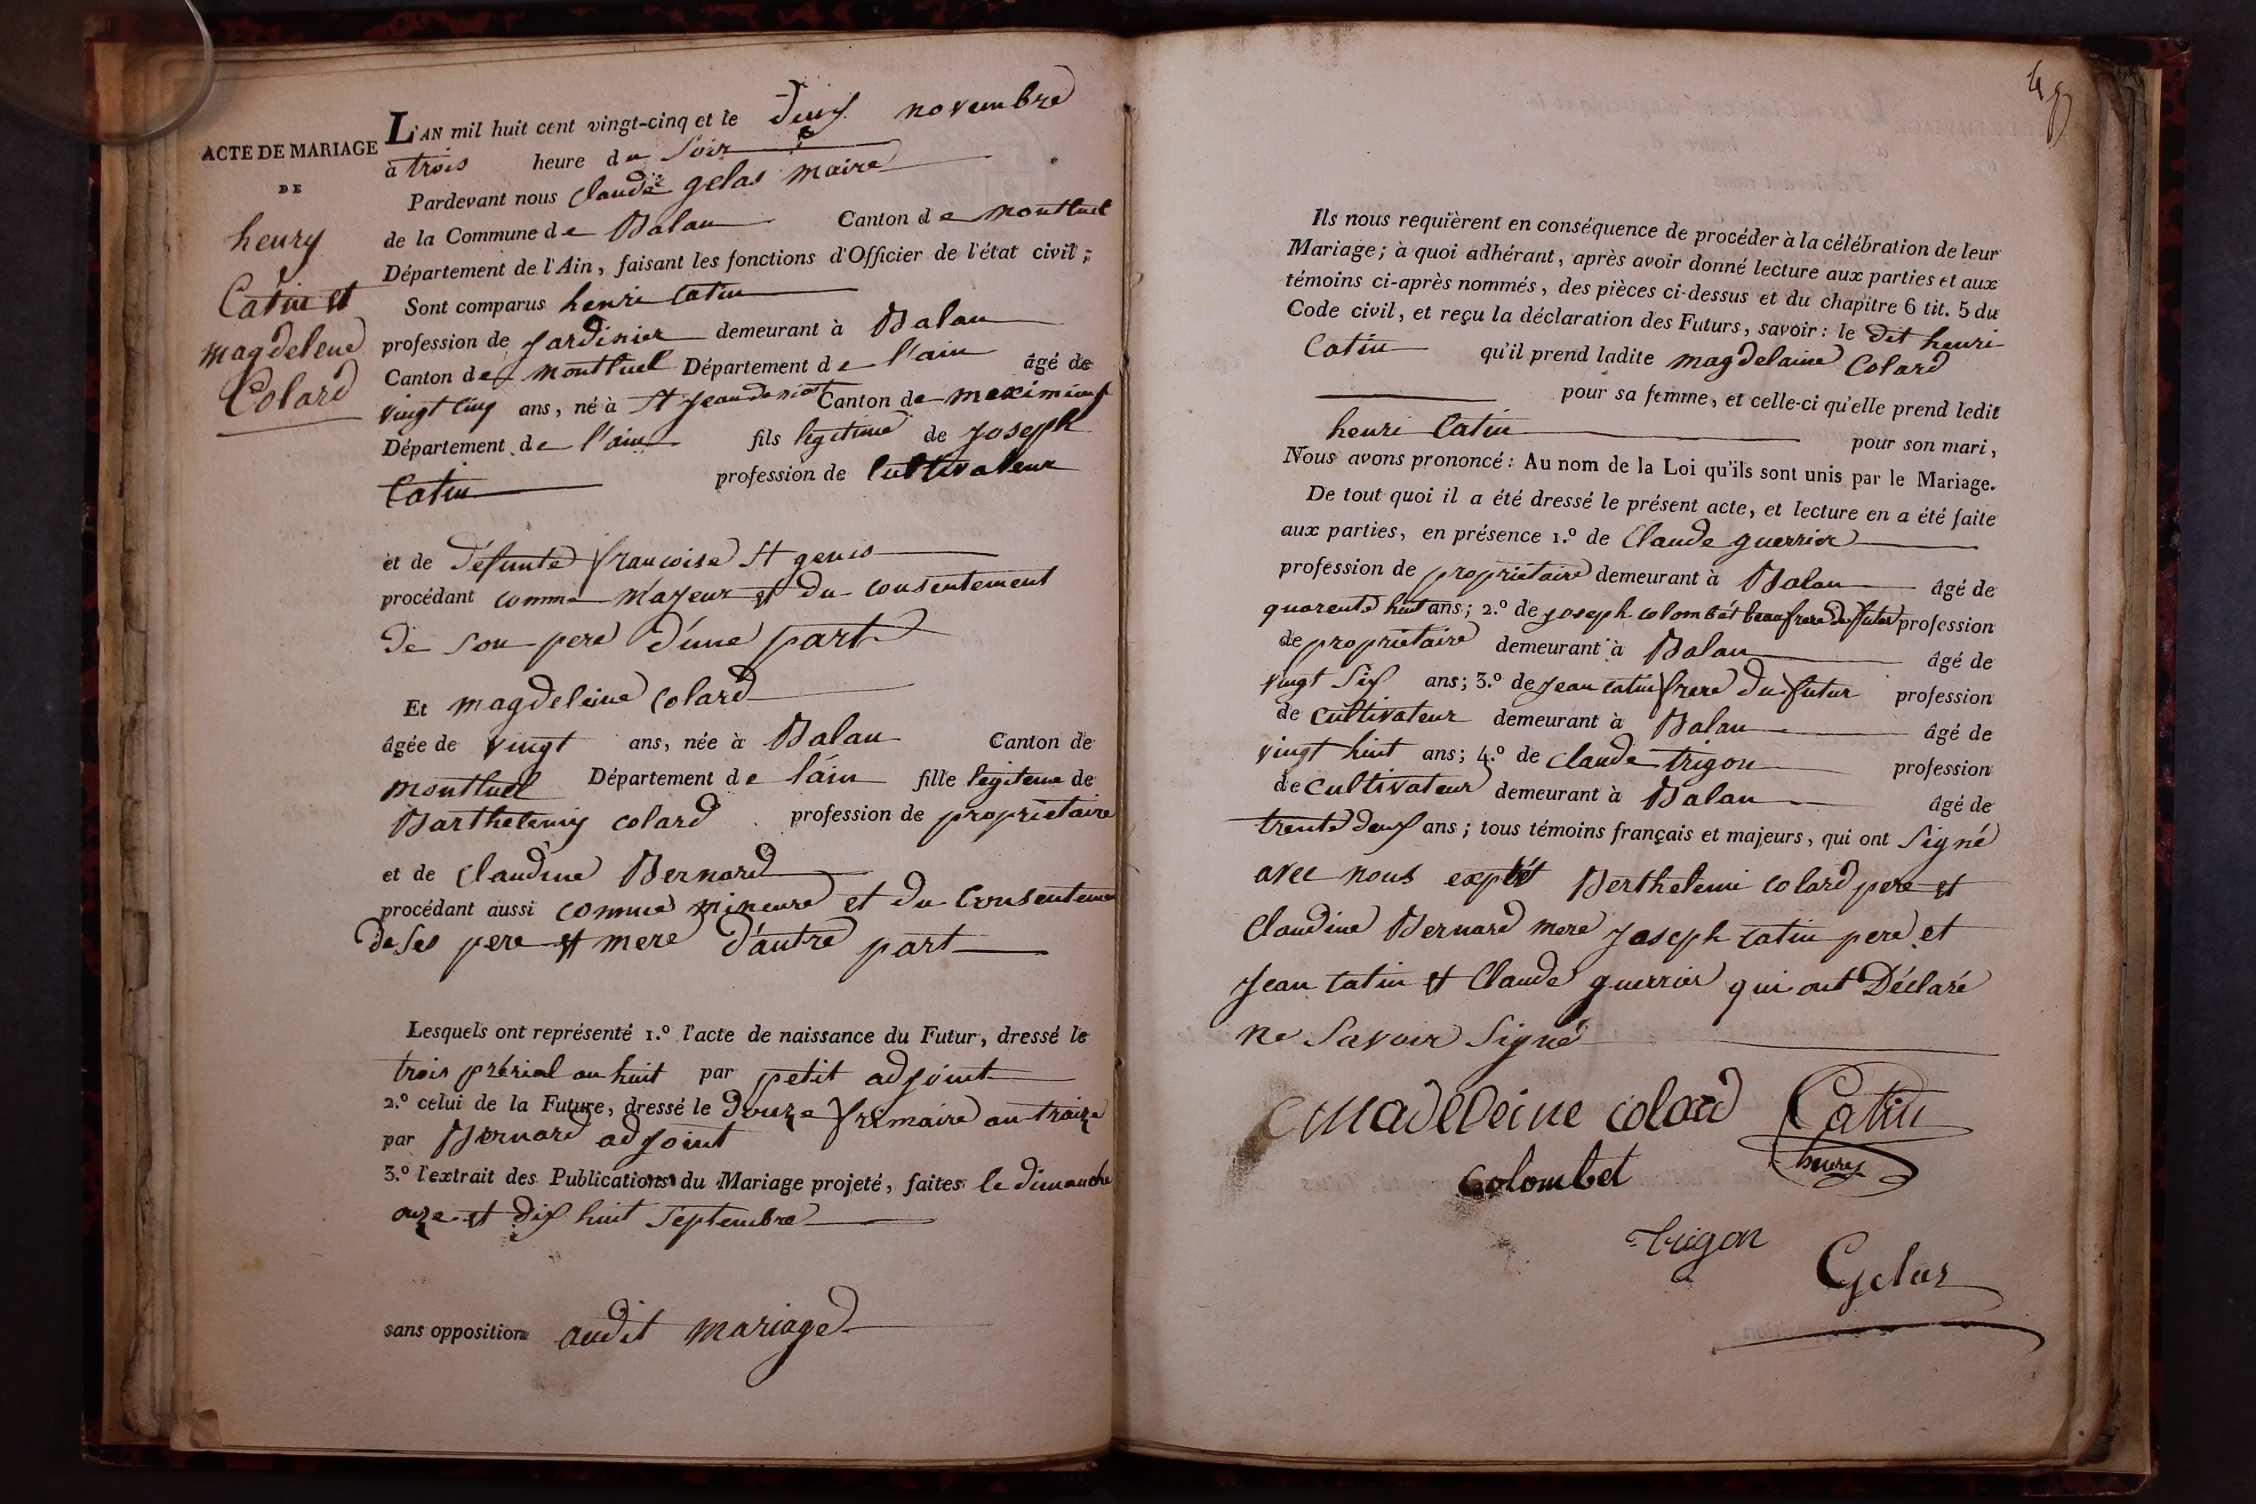 ACTE DE MARIAGE
DE
henry
Catin et
magdelene
Colard
L'AN mil huit cent vingt-cinq et le deux novembre
à trois heure du Soir
Pardevant nous Claude gelas maire
de la Commune de Balan Canton de montluel
Département de l'Ain, faisant les fonctions d'Officier de l'état civil;
Sont comparus henri Catin
profession de Jardinier demeurant à Balan
Canton de montluel Département de l'ain âgé de
vingt cinq ans, né à St Jean de niot Canton de meximieux
Département de l'ain fils legitime de Joseph
Catin profession de Cultivateur
et de défunte francoise St genis
procédant comme Majeur et du consentement
de Son pere d'une part
Et magdeleine Colard
âgée de vingt ans, née à Balan Canton de
montluel Département de l'ain fille legiteme de
Barthelemy colard profession de proprietaire
et de Claudine Bernard
procédant aussi comme mineure et du Consenteme
de Ses pere et mere d'autre part
Lesquels ont représenté 1.º l'acte de naissance du Futur, dressé le
trois prérial an huit par petit adjoint
2.º celui de la Future, dressé le Douze frimaire an traize
par Bernard adjoint
3.º l'extrait des Publications du Mariage projeté, faites le dimanche
onze et dix huit Septembre
sans opposition audit mariage
49
Ils nous requièrent en conséquence de procéder à la célébration de leur
Mariage; à quoi adhérant, après avoir donné lecture aux parties et aux
témoins ci-après nommés, des pièces ci-dessus et du chapitre 6 tit. 5 du
Code civil, et reçu la déclaration des Futurs, savoir: le dit henri
Catin qu'il prend ladite magdelaine Colard
pour sa femme, et celle-ci qu'elle prend ledit
henri Catin pour son mari,
Nous avons prononcé: Au nom de la Loi qu'ils sont unis par le Mariage.
De tout quoi il a été dressé le présent acte, et lecture en a été faite
aux parties, en présence 1.º de Claude guerrier
profession de propriétaire demeurant à Balan âgé de
quarente huit ans; 2.º de Joseph colombét beaufrere du futur profession
de proprietaire demeurant à Balan âgé de
vingt Six ans; 3.º de Jean catin frere du futur profession
de Cultivateur demeurant à Balan âgé de
vingt huit ans; 4.º de Claude trigon profession
de Cultivateur demeurant à Balan âgé de
trente deux ans; tous témoins français et majeurs, qui ont Signé
avec nous Berthelemi colard pere et
Claudine Bernard mere Joseph catin pere et
Jean catin et Claude guerrier qui ont Déclaré
ne Savoir Signé
Madeleine colard Catin
henry
Colombet
trigon
Gelas